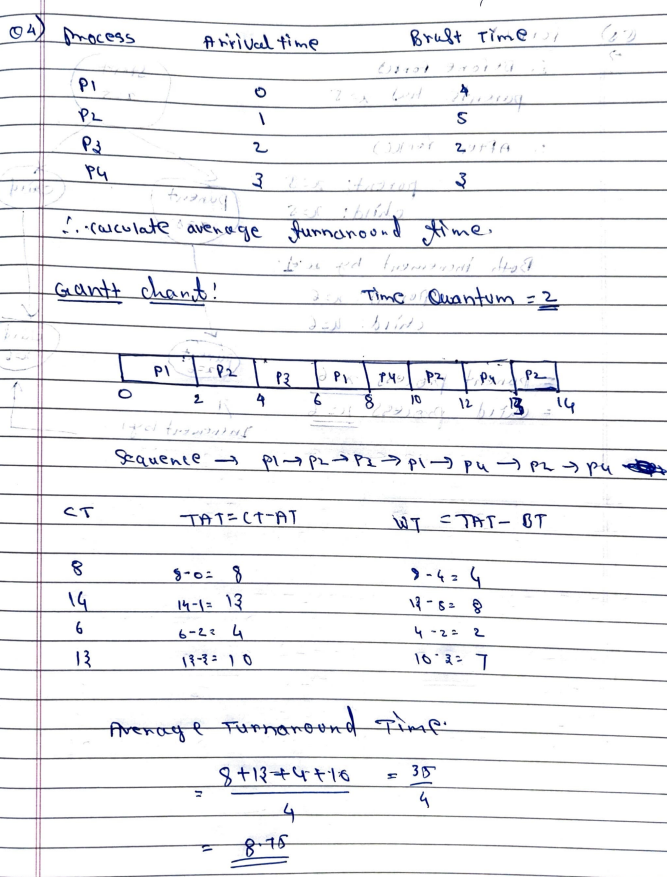 Q4) Process Arrival time Brust Time
P1 0 4
P2 1 5
P3 2 2
P4 3 3
∴ calculate average turnaround time.
Gantt chart: Time Quantum = 2
P1 P2 P3 P1 P4 P2 P4 P2
0 2 4 6 8 10 12 13 14
Sequence → P1 → P2 → P2 → P1 → P4 → P2 → P4
CT TAT = CT-AT WT = TAT - BT
8 8-0= 8 8-4= 4
14 14-1= 13 13-5= 8
6 6-2= 4 4-2= 2
13 13-3= 10 10-3= 7
Average Turnaround Time.
= 8+13+4+10 / 4 = 35 / 4
= 8.75